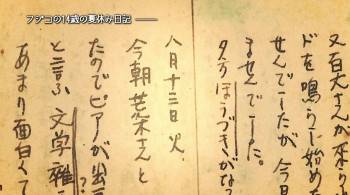 フジコの14歳の夏休み日記
又百大さんが来り
ドを鳴らし始め
せんでしたが今日
ませんでした。
夕方ほうづきがな
八月十三日火、
今朝さんと
たのでピアノが出
と言ふ文学雑
あまり面白くて